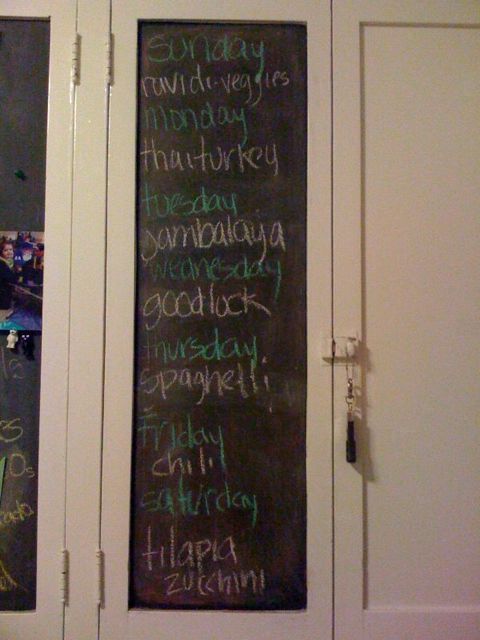 sunday
ravioli-veggies
monday
thai turkey
tuesday
jambalaya
wednesday
good luck
thursday
spaghetti
friday
chili
saturday
tilapia
zucchini